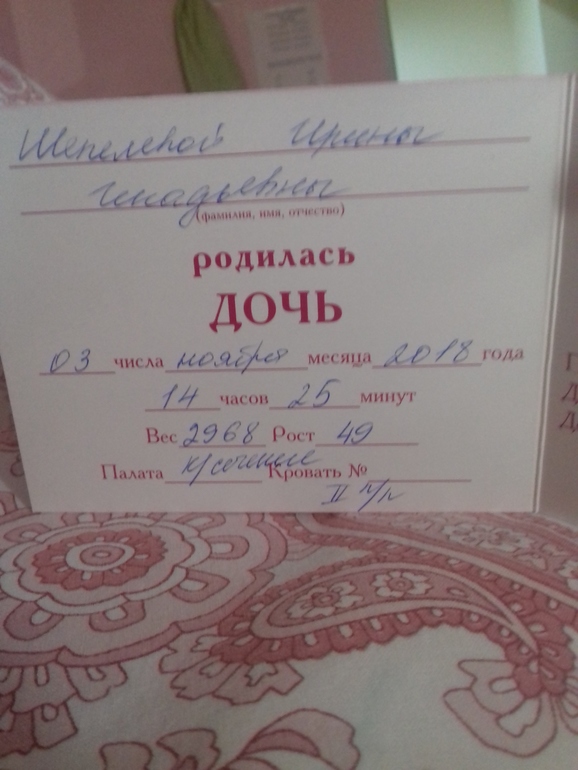 Шепелевой Ирины
Генадьевны
(фамилия, имя, отчество)
родилась
ДОЧЬ
03 числа ноября месяца 2018 года
14 часов 25 минут
Вес 2968 Рост 49
Палата к/сечение Кровать №
II п/п